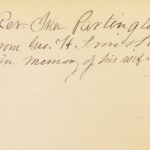 Rev. Ira Partingto
from Geo. H. Smith
in memory of his wife